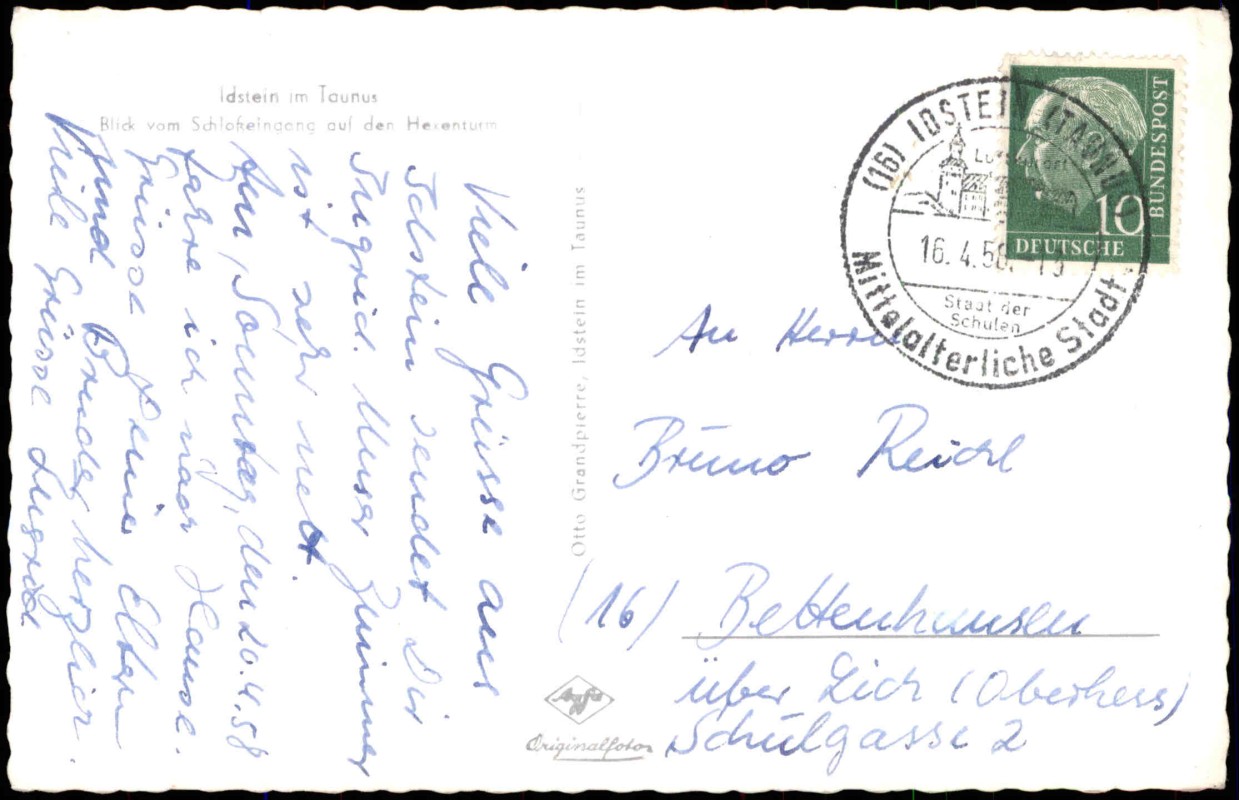 Idstein im Taunus
Blick vom Schloßeingang auf den Hexenturm
Viele Grüsse aus
Idstein sendet Dir
Ingrid. Unser Zimmer
ist sehr nett.
Am, Sonntag, den 20.4.58
fahre ich nach Hause.
Grüsse Deine Eltern
und Bruder herzlich.
Viele Grüsse Ingrid
Otto Grandpierre, Idstein im Taunus
Agfa
Originalfoto
(16) IDSTEIN (TAUNUS)
16.4.58.-13
Stadt der
Schulen
Mittelalterliche Stadt
BUNDESPOST
10
DEUTSCHE
An Herrn
Bruno Reichl
(16) Bettenhausen
über Lich (Oberhess)
Schulgasse 2